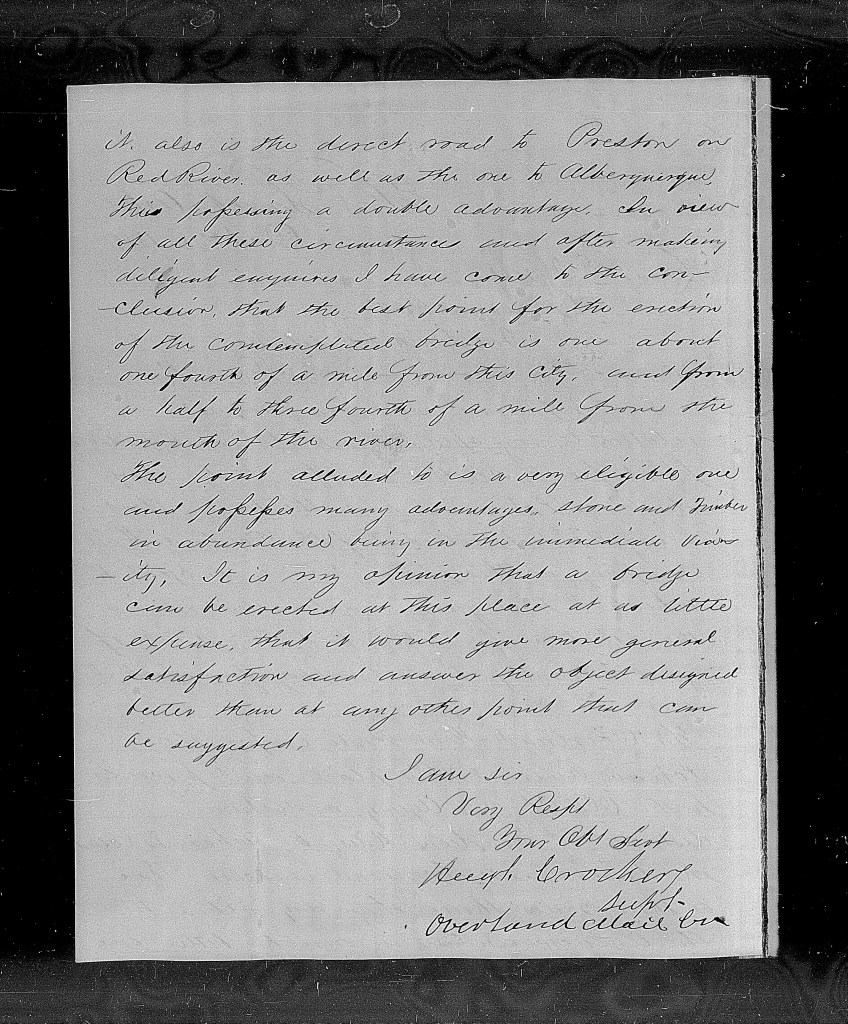 it. also is the direct road to Preston on
Red River. as well as the one to Alberquerque,
this possessing a double advantage. In view
of all these circumstances and after making
diligent enquires I have come to the con-
-clusion, that the best point for the erection
of the comtemplated bridge is one about
one fourth of a mile from this City, and from
a half to three fourth of a mile from the
mouth of the river.
The point alluded to is a very eligible one
and possesses many advantages, stone and Timber
in abundance being in the immediate vicin
-ity, It is my opinion that a bridge
can be erected at this place at as little
expense, that it would give more general
satisfaction and answer the object designed
better than at any other point that can
be suggested.
I am sir
Very Respt
Your Obt Servt
Hugh Crockery
Supt-
Overland Mail Co